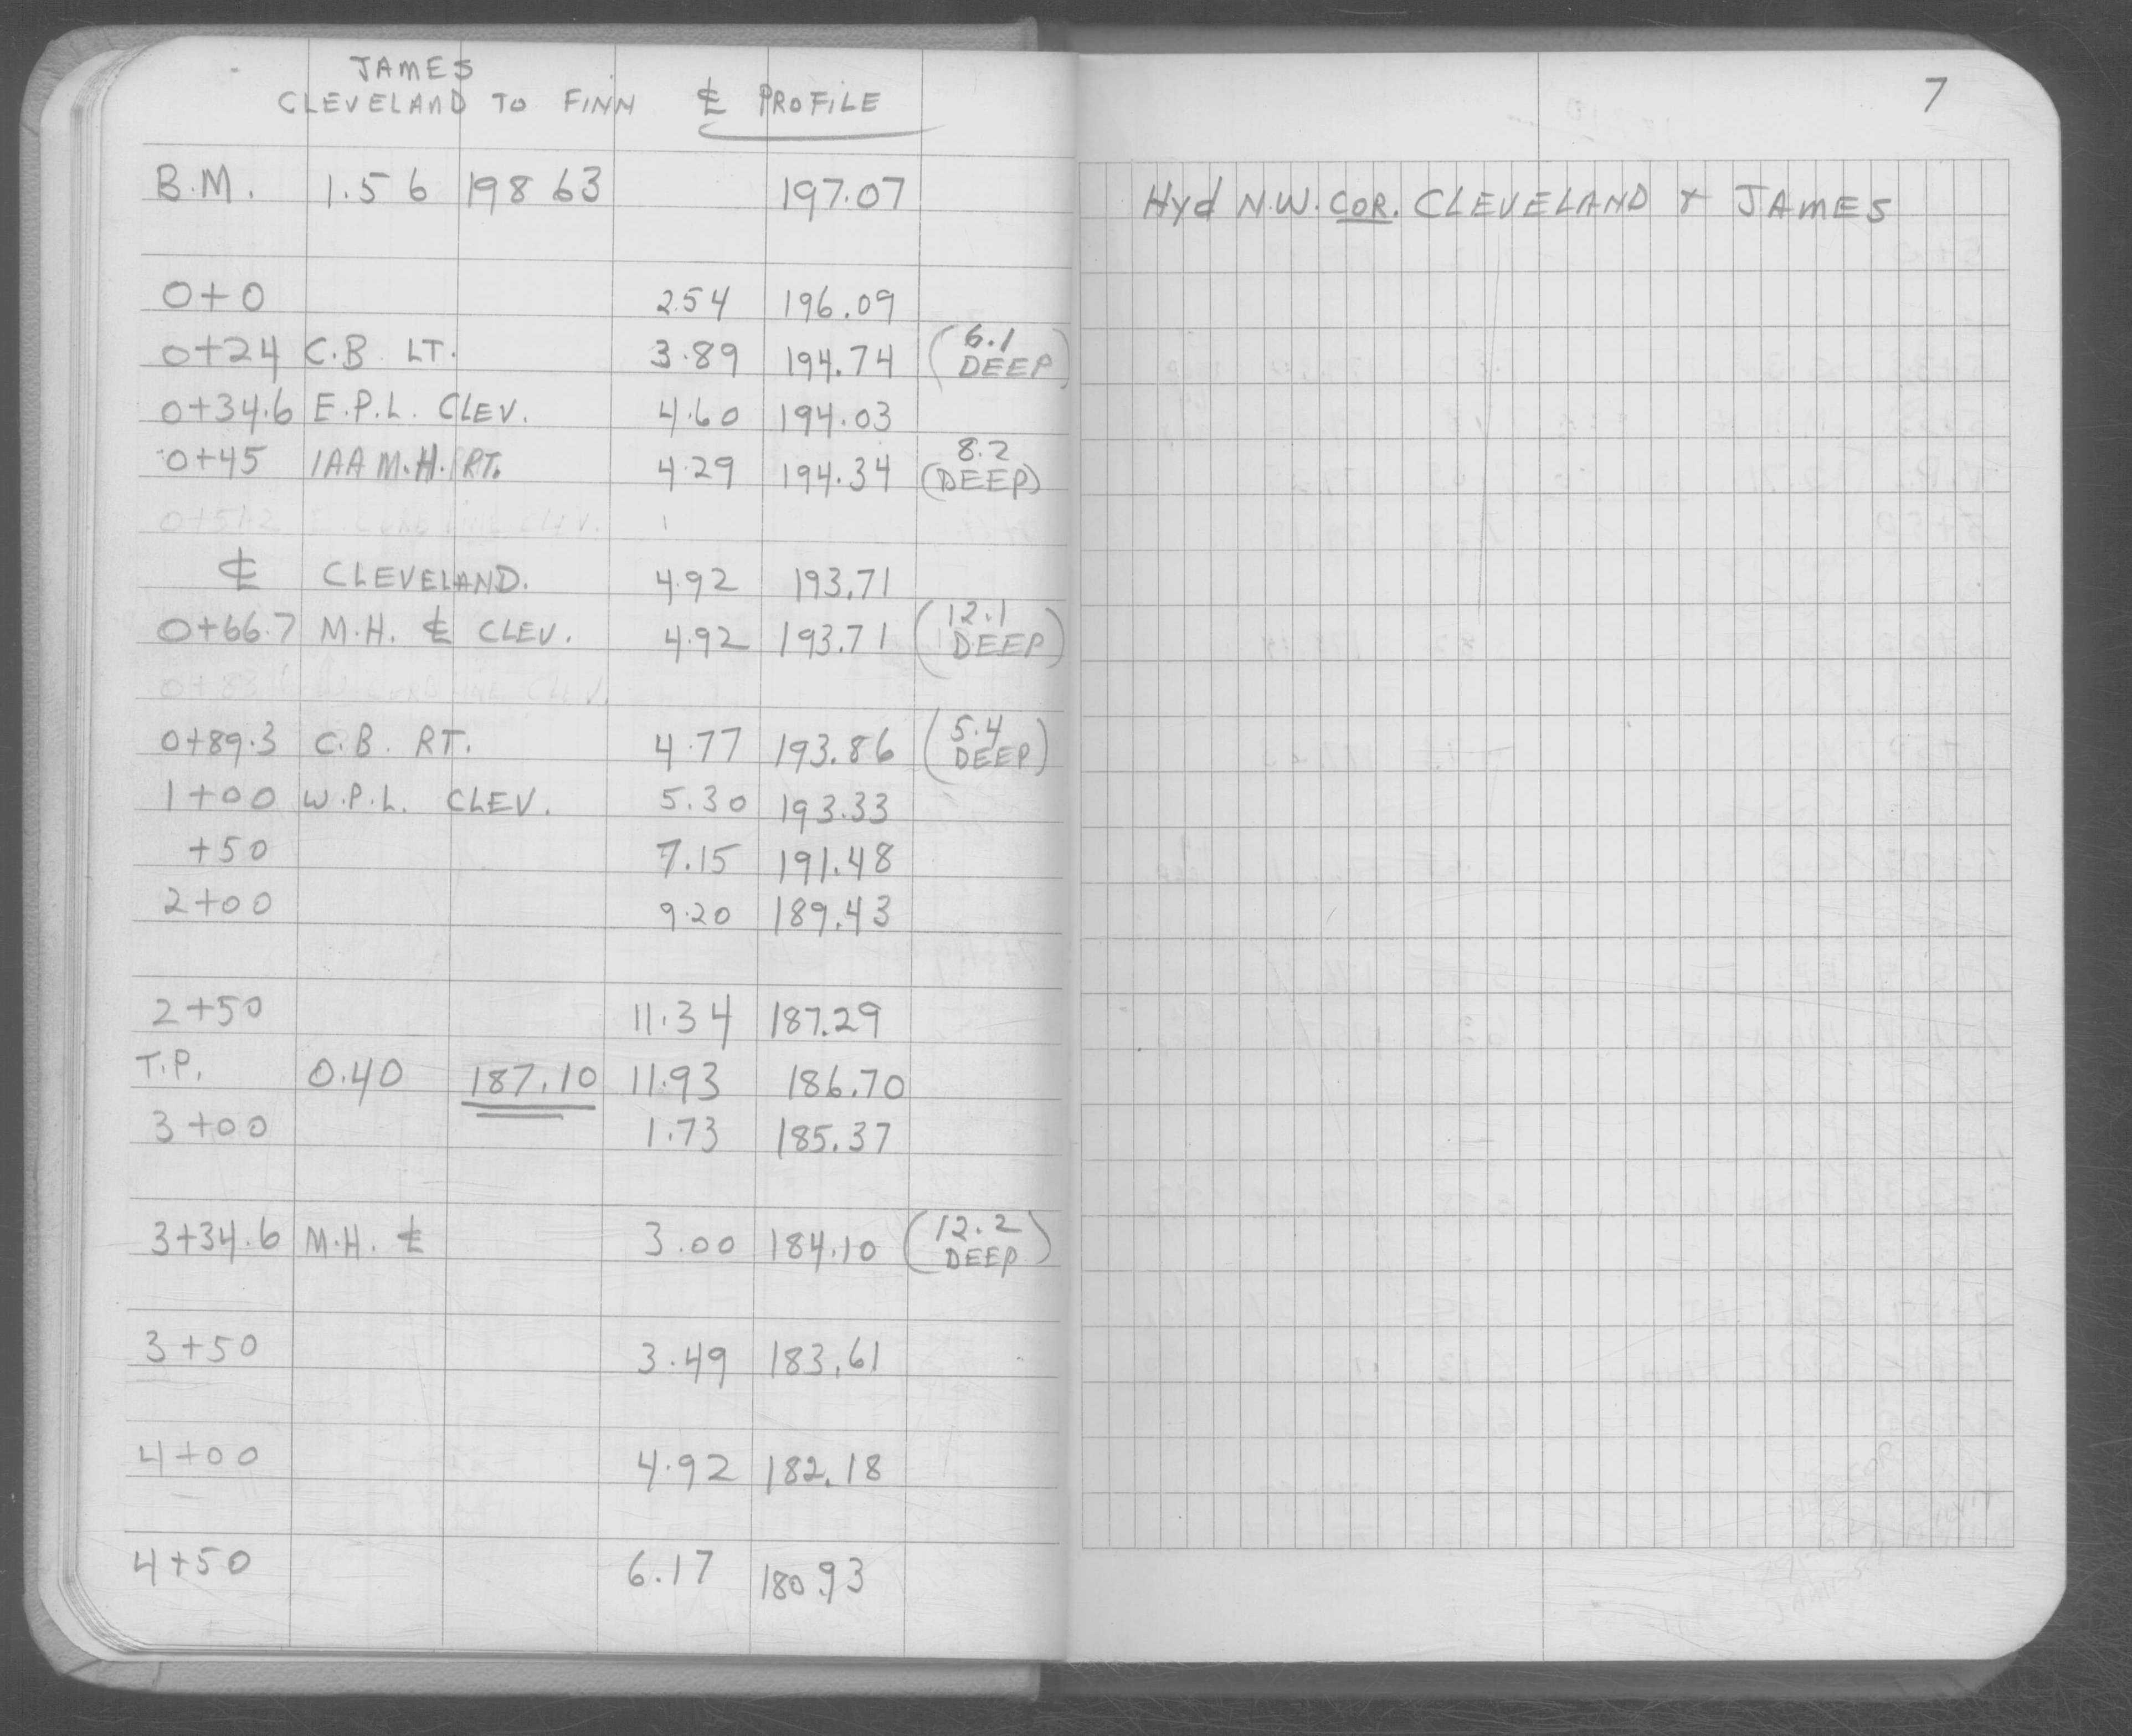 JAMES
CLEVELAND TO FINN ℄ PROFILE
7
B.M. 1.56 198 63 197.07
Hyd N.W. COR. CLEVELAND & JAMES
0+0 2.54 196.09
0+24 C.B. LT. 3.89 194.74 (6.1 DEEP)
0+34.6 E.P.L. CLEV. 4.60 194.03
0+45 1AA M.H. RT. 4.29 194.34 8.2 (DEEP)
0+51.2 E. CURB LINE CLEV.
℄ CLEVELAND. 4.92 193.71
0+66.7 M.H. ℄ CLEV. 4.92 193.71 (12.1 DEEP)
W. CURB LINE CLEV.
0+89.3 C.B. RT. 4.77 193.86 (5.4 DEEP)
1+00 W.P.L. CLEV. 5.30 193.33
+50 7.15 191.48
2+00 9.20 189.43
2+50 11.34 187.29
T.P. 0.40 187.10 11.93 186.70
3+00 1.73 185.37
3+34.6 M.H. ℄ 3.00 184.10 (12.2 DEEP)
3+50 3.49 183.61
4+00 4.92 182.18
4+50 6.17 180.93